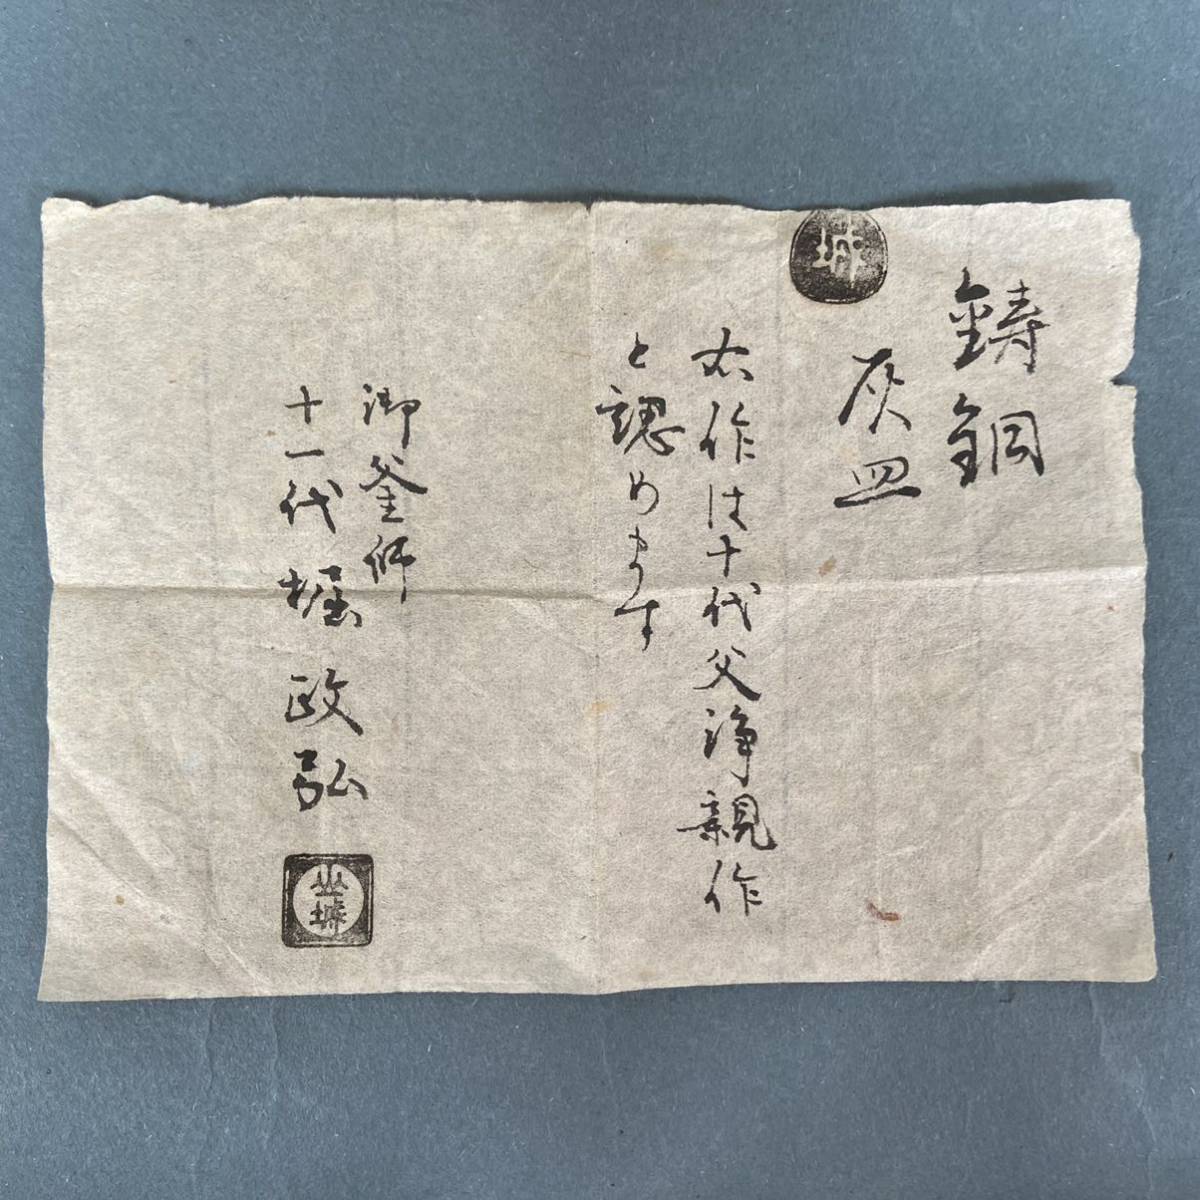 鋳銅
灰皿
城
右作は十代父浄親作
と認めます
御釜師
十一代堀政弘
山城